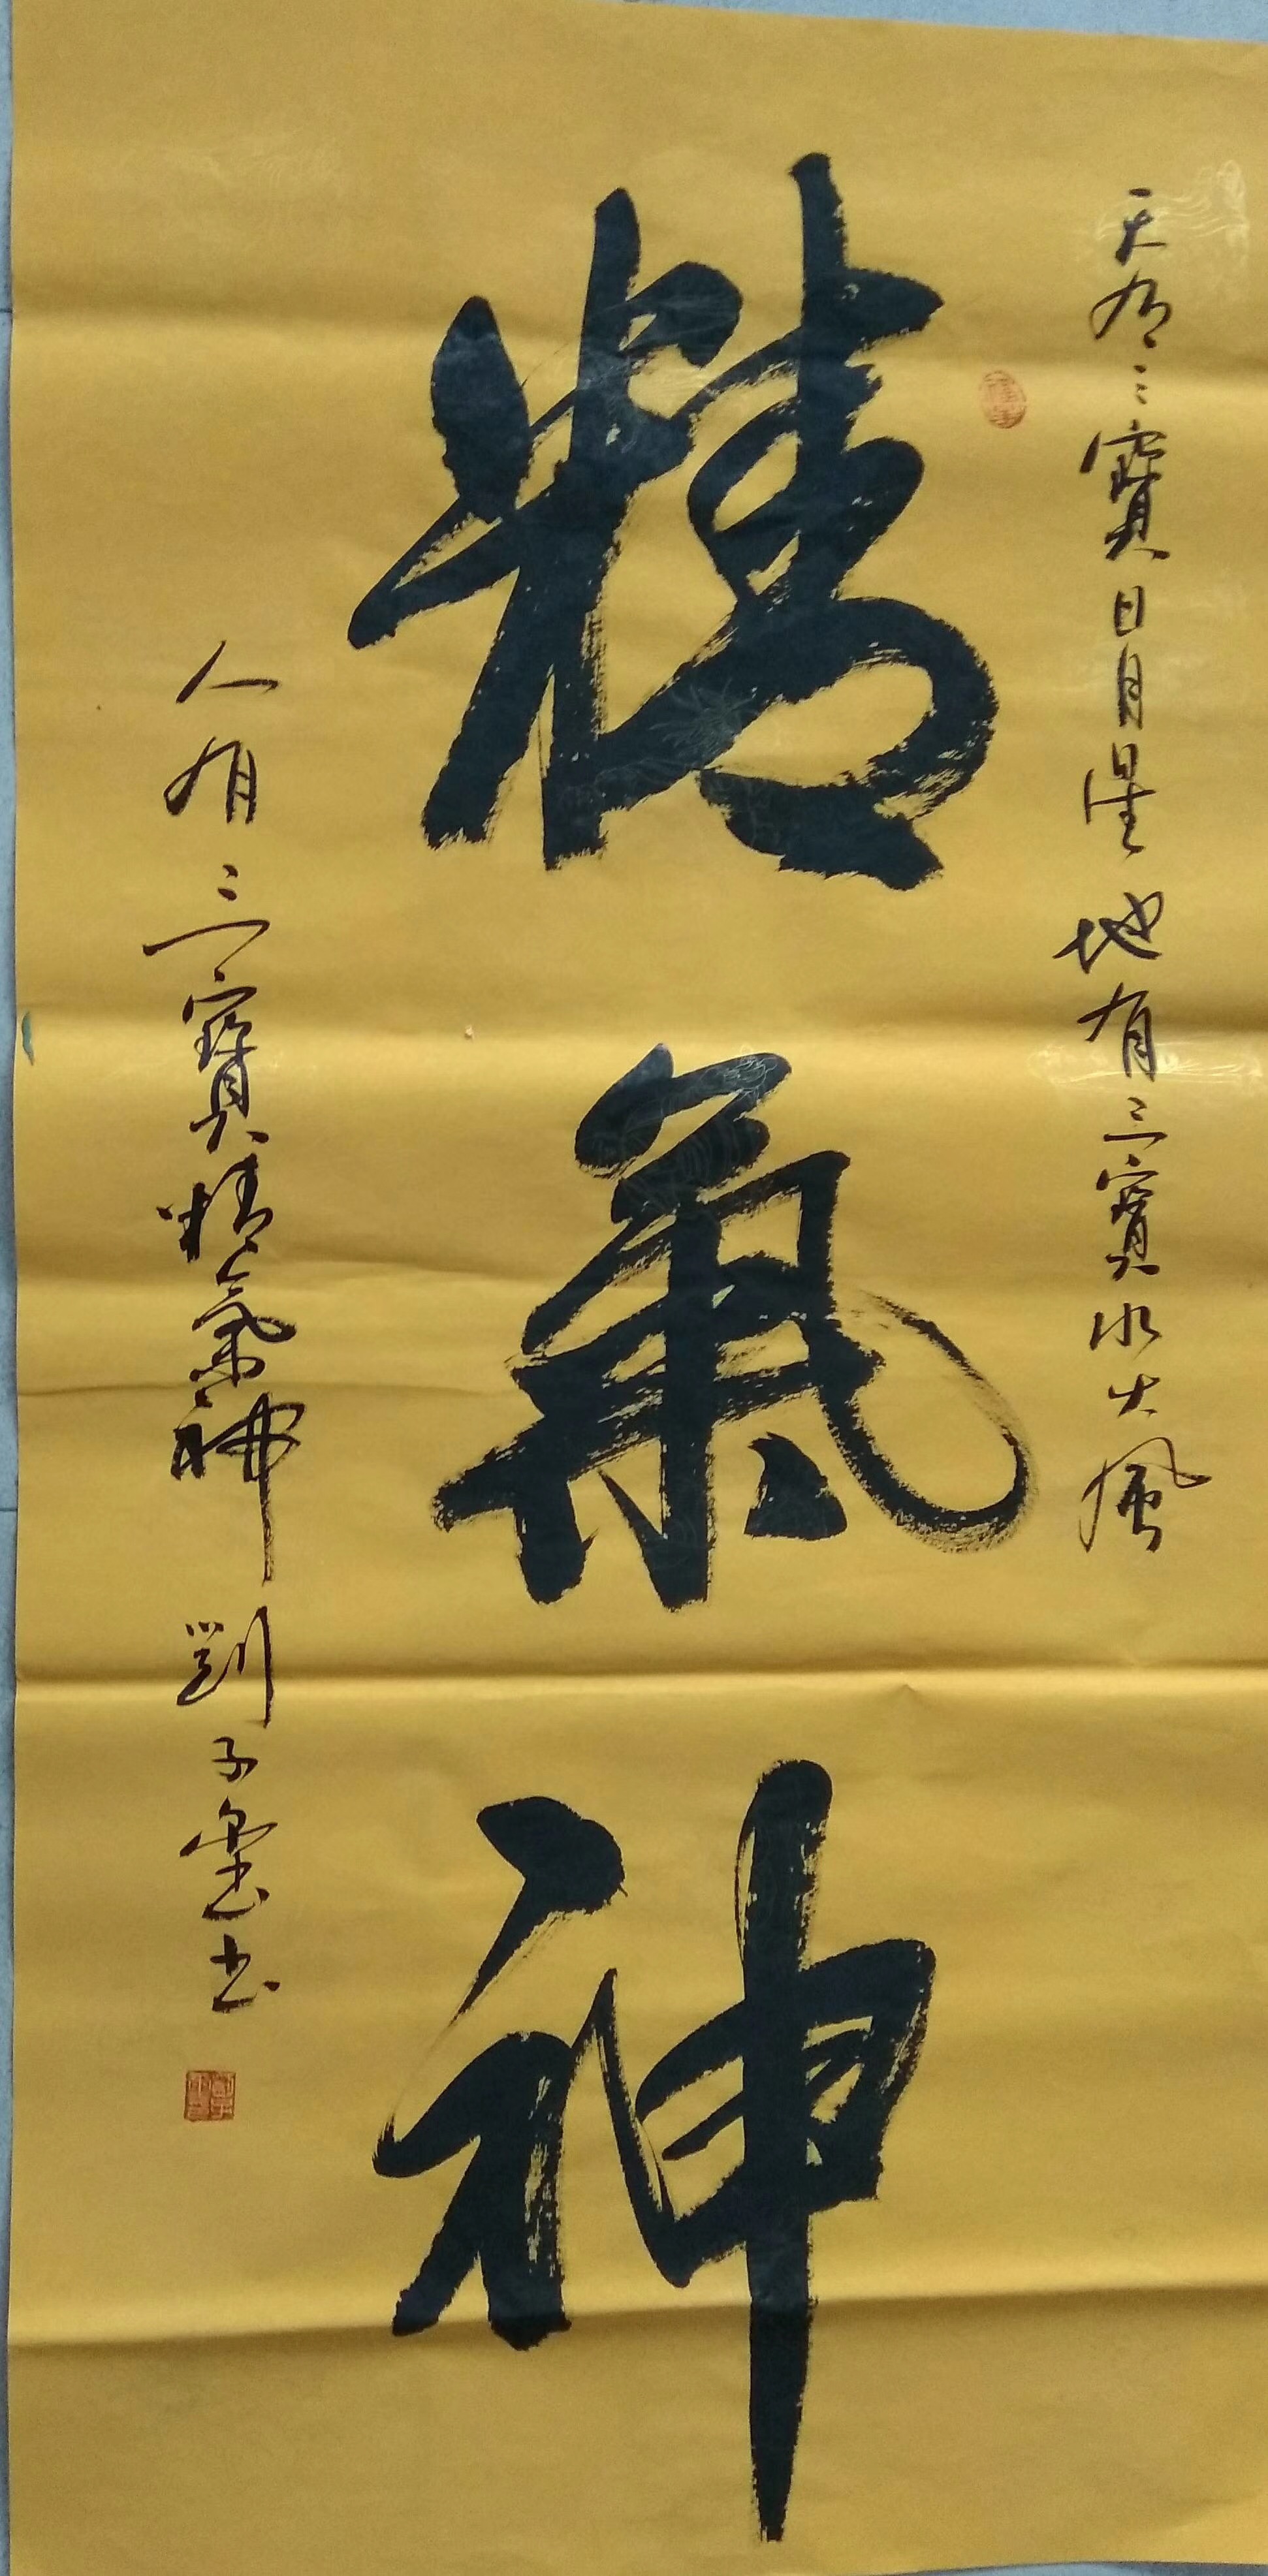 天有三寶日月星地有三寶水火風
精氣神
人有三寶精氣神 劉子墨書